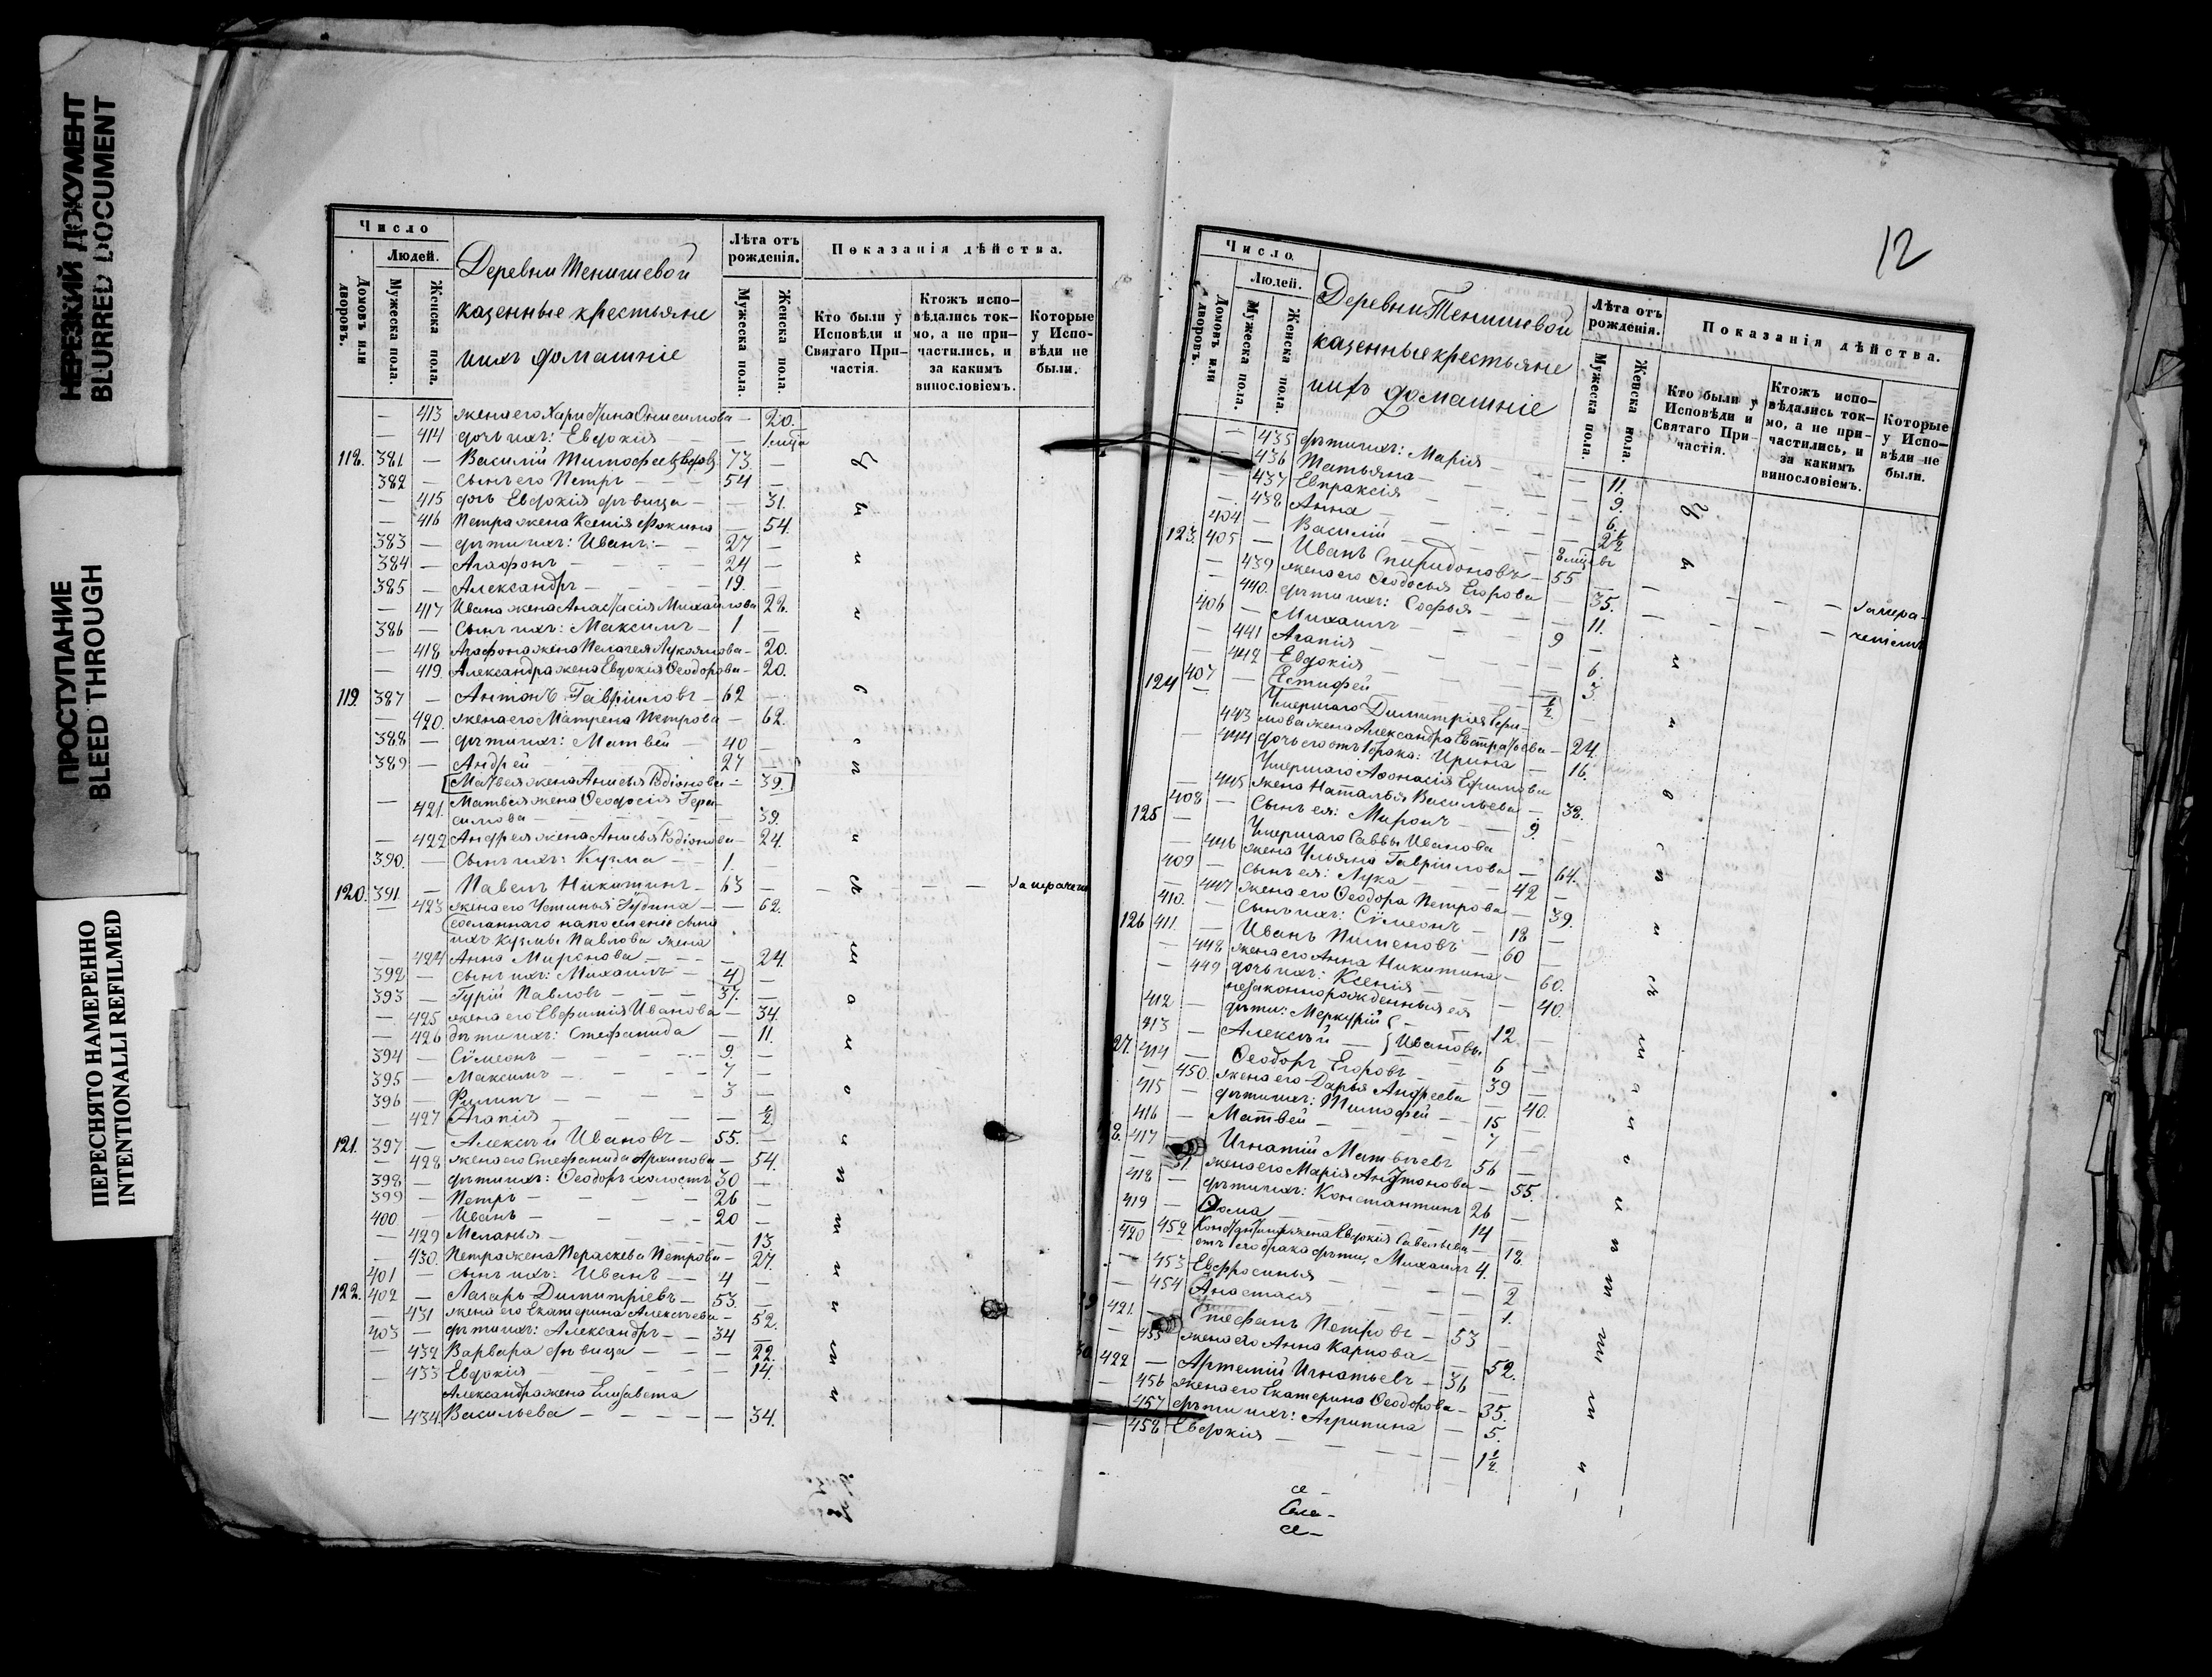 НЕРЕЗКИЙ ДОКУМЕНТ
BLURRED DOCUMENT
ПРОСТУПАНИЕ
BLEED THROUGH
ПЕРЕСНЯТО НАМЕРЕННО
INTENTIONALLI REFILMED
Число
Людей.
Домовъ или дворовъ.
Мужеска пола.
Женска пола.
Деревни Тенишевой
казенные крестьяне
и ихъ домашніе
Лѣта отъ рожденія.
Мужеска пола.
Женска пола.
Показанія дѣйства.
Кто были у Исповѣди и Святаго При-частія.
Ктожъ испо-вѣдались ток-мо, а не при-частились, и за какимъ винословіемъ.
Которые у Испо-вѣди не были.
— 413 жена его Харитина Онисимова — 20.
— 414 дочь ихъ: Евдокія — 1 мца
118. 381 — Василій Тимофеевъ вдовъ 73. —
382 — сынъ его Петръ — 54 —
— 415 дочь Евдокія дѣвица — 31.
— 416 Петра жена Ксенія Фокина — 54.
383 — дѣти ихъ: Иванъ — 27 —
384 — Агафонъ — 24 —
385 — Александръ — 19. —
— 417 Ивана жена Анастасія Михайлова 28.
386 — сынъ ихъ: Максимъ — 1 —
— 418 Агафона жена Пелагея Лукоянова — 20.
— 419 Александра жена Евдокія Ѳеодорова — 20.
119. 387 — Антонъ Гавріиловъ — 62 —
— 420. жена его Матрена Петрова — 62.
388 — дѣти ихъ: Матвей — 40 —
389 — Андрей — 27 —
[Матвея жена Анисья Родіонова — 39.]
— 421. Матвея жена Ѳеодосія Гера-
симова — 39.
— 422 Андрея жена Анисья Родіонова — 24.
390. — Сынъ ихъ: Кузма — 1. —
120. 391. — Павелъ Никитинъ — 63 —
— 423 жена его Устинья Гудина — 62.
Сосланнаго на поселеніе сына
ихъ Кузмы Павлова жена
— 424 Анна Миронова — 24.
392 — сынъ ихъ: Михаилъ — 4 —
393 — Гурій Павловъ — 37. —
— 425 жена его Евфимія Иванова — 34.
— 426 дѣти ихъ: Стефанида — 11.
394 — Сѵмеонъ — 9. —
395 — Максимъ — 7 —
396 — Филипъ — 3 —
— 427 Агапія — 1/2
121. 397 — Алексѣй Ивановъ — 55. —
— 428 жена его Стефанида Архипова — 54.
398 — дѣти ихъ: Ѳеодоръ холостъ 30 —
399 — Петръ — 26 —
400 — Иванъ — 20 —
— 429 Меланья — 13
— 430. Петра жена Параскева Петрова — 27.
401 — сынъ ихъ: Иванъ — 4 —
122. 402 — Лазарь Димитріевъ — 53. —
— 431 жена его Екатерина Алексѣева — 52.
403 — дѣти ихъ: Александръ — 34 —
— 432 Варвара дѣвица — 22.
— 433 Евдокія — 14.
Александра жена Елизавета
— 434. Васильева — 34.
12
Число.
Людей.
Домовъ или дворовъ.
Мужеска пола.
Женска пола.
Деревни Тенишевой
казенные крестьяне
и ихъ домашніе
Лѣта отъ рожденія.
Мужеска пола.
Женска пола.
Показанія дѣйства.
Кто были у Исповѣди и Святаго При-частія.
Ктожъ испо-вѣдались ток-мо, а не при-частились, и за какимъ винословіемъ.
Которые у Испо-вѣди не были.
— 435 дѣти ихъ: Марія — 11.
— 436 Татьяна — 9.
— 437 Евпраксія — 6.
— 438 Анна — 2 1/2
404 — Василій — 8 мцевъ
123. 405 — Иванъ Спиридоновъ — 55 —
— 439 жена его Ѳеодосья Егорова — 35.
— 440. дѣти ихъ: Софья — 11.
406 — Михаилъ — 9 —
— 441 Агапія — 6.
— 442 Евдокія — 3.
407 — Естифей — 1/2 —
124 Умершаго Димитрія
— 443 жена Александра Евстратьева — 24.
— 444 дочь его отъ 1 брака: Ирина — 16.
Умершаго Аѳонасія Ефимова
— 445 жена Наталья Васильева — 38.
408 — Сынъ ея: Миронъ — 9. —
125 Умершаго Саввы Иванова
— 446 жена Ульяна Гавріилова — 64.
409 — сынъ ея: Лука — 42 —
— 447 жена его Ѳеодора Петрова — 39.
410. — сынъ ихъ: Сѵмеонъ — 18 —
126 411. — Иванъ Пименовъ — 60 —
— 448 жена его Анна Никитина — 60.
— 449 дочь ихъ: Ксенія — 40.
незаконнорожденныя ея
412 — дѣти: Меркурій — 12 —
413 — Алексѣй — } Ивановы 6 —
27. 414 — Ѳеодоръ Егоровъ — 39 —
— 450. жена его Дарья Андреева — 40.
415 — дѣти ихъ: Тимофей — 15 —
416 — Матвей — 7 —
8. 417 — Игнатій Матвѣевъ — 56 —
— 51. жена его Марія Антонова — 55.
418 — дѣти ихъ: Константинъ 26 —
419 — Ѳома — 14 —
— 452 Константина жена Евдокія Савельева — 18.
420 отъ 1го брака дѣти, Михаилъ 4. —
— 453 Евфросинья — 2
— 454 Анастасія — 1.
421. — Стефанъ Петровъ — 53 —
— 455 жена его Анна Карпова — 52.
422 — Артемій Игнатьевъ — 36 —
— 456 жена его Екатерина Ѳеодорова — 35.
— 457 дѣти ихъ: Агрипина — 5.
— 458 Евдокія — 1 1/2